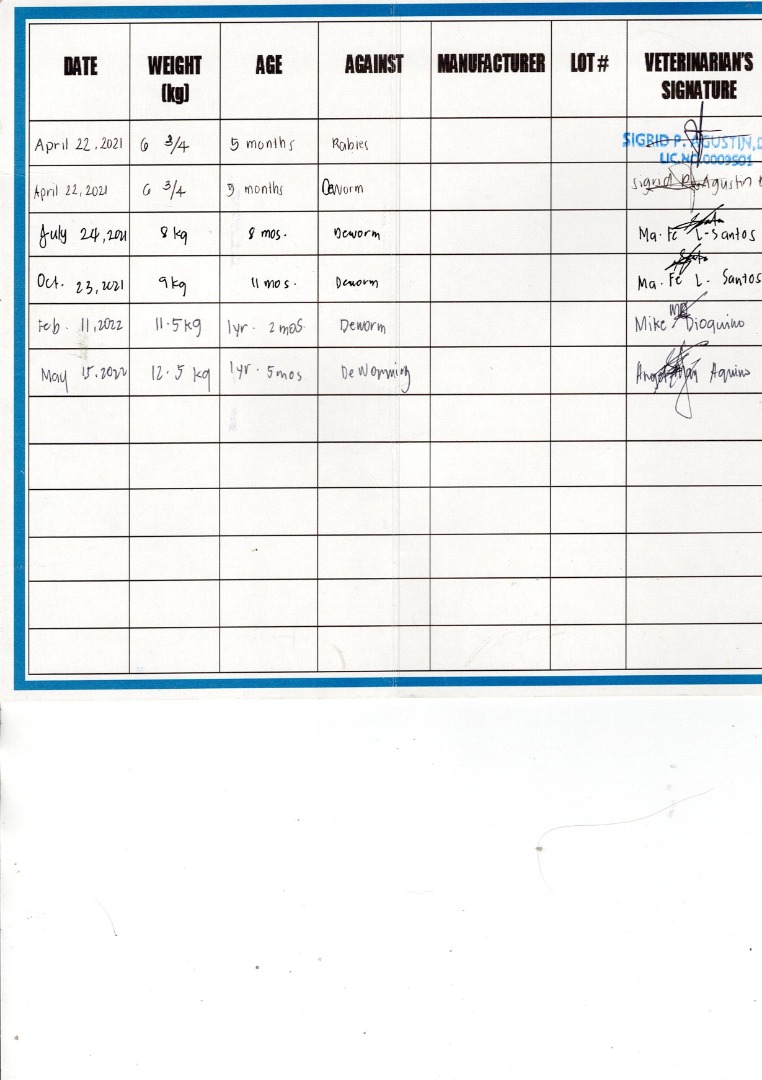 DATE WEIGHT (kg) AGE AGAINST MANUFACTURER LOT # VETERINARIAN'S SIGNATURE
April 22, 2021 6 3/4 5 months Rabies SIGRID P. AGUSTIN, D
LIC.NO.0009501
April 22, 2021 6 3/4 5 months Deworm Sigrid P. Agustin
July 24, 2021 8 kg 8 mos. Deworm Ma. Fe L. Santos
Oct. 23, 2021 9 kg 11 mos. Deworm Ma. Fe L. Santos
Feb. 11, 2022 11.5 kg 1 yr. 2 mos. Deworm Mike Dioquino
May 15, 2022 12.5 kg 1 yr. 5 mos DeWorming Aquino